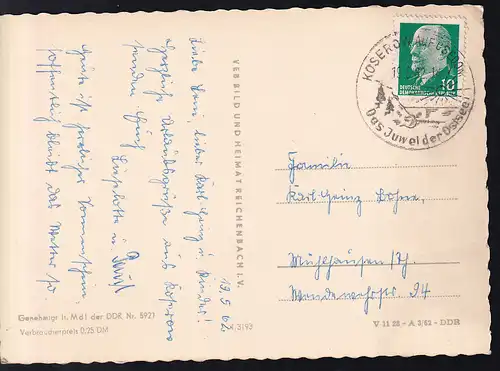 19.5.62
Liebe Anni, lieber Karl-Heinz u. Kinder!
Herzliche Urlaubsgrüße aus Koserow
senden Euch
Lieselotte u.
Heute ist herrlicher Sonnenschein,
hoffentlich bleibt das Wetter so.
VEB BILD UND HEIMAT REICHENBACH I. V.
X 3193
Genehmigt lt. MdI der DDR, Nr. 5921
Verbraucherpreis 0,25 DM
KOSEROW
Das Juwel der Ostsee!
10
DEUTSCHE
DEMOKRATISCHE REPUBLIK
Familie
Karl-Heinz Bohne,
Mühlhausen/Th.
Wendewehrstr. 94
V 11 28 - A 3/62 - DDR